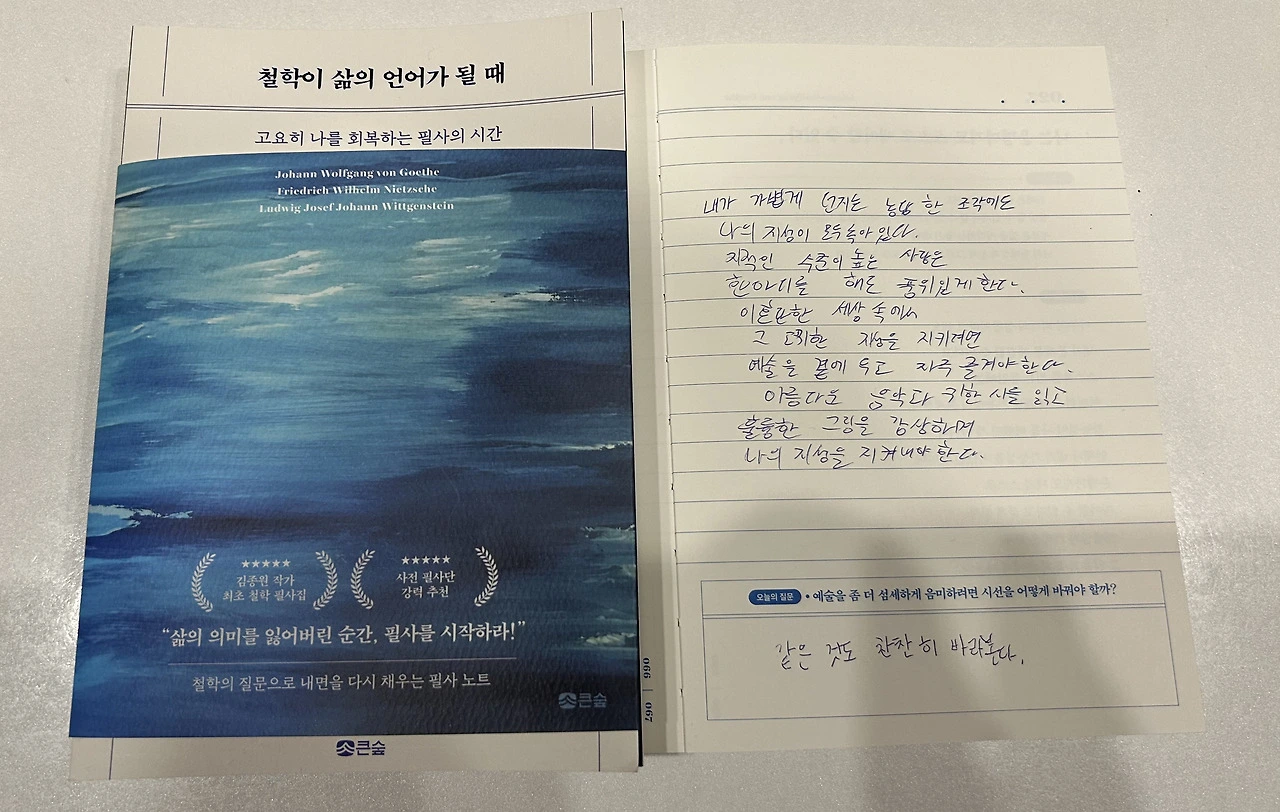 철학이 삶의 언어가 될 때
고요히 나를 회복하는 필사의 시간
Johann Wolfgang von Goethe
Friedrich Wilhelm Nietzsche
Ludwig Josef Johann Wittgenstein
★★★★★
김종원 작가
최초 철학 필사집
★★★★★
사전 필사단
강력 추천
“삶의 의미를 잃어버린 순간, 필사를 시작하라!”
철학의 질문으로 내면을 다시 채우는 필사 노트
큰숲
큰숲
066 | 067
내가 가볍게 던지는 농담 한 조각에도
나의 지성이 모두 녹아 있다.
지적인 수준이 높은 사람은
한마디를 해도 품위있게 한다.
이 혼란한 세상 속에서
그 고귀한 지성을 지키려면
예술을 곁에 두고 자주 즐겨야 한다.
아름다운 음악과 귀한 시를 읽고
훌륭한 그림을 감상하며
나의 지성을 지켜내야 한다.
오늘의 질문 • 예술을 좀 더 섬세하게 음미하려면 시선을 어떻게 바꿔야 할까?
같은 것도 찬찬히 바라본다.